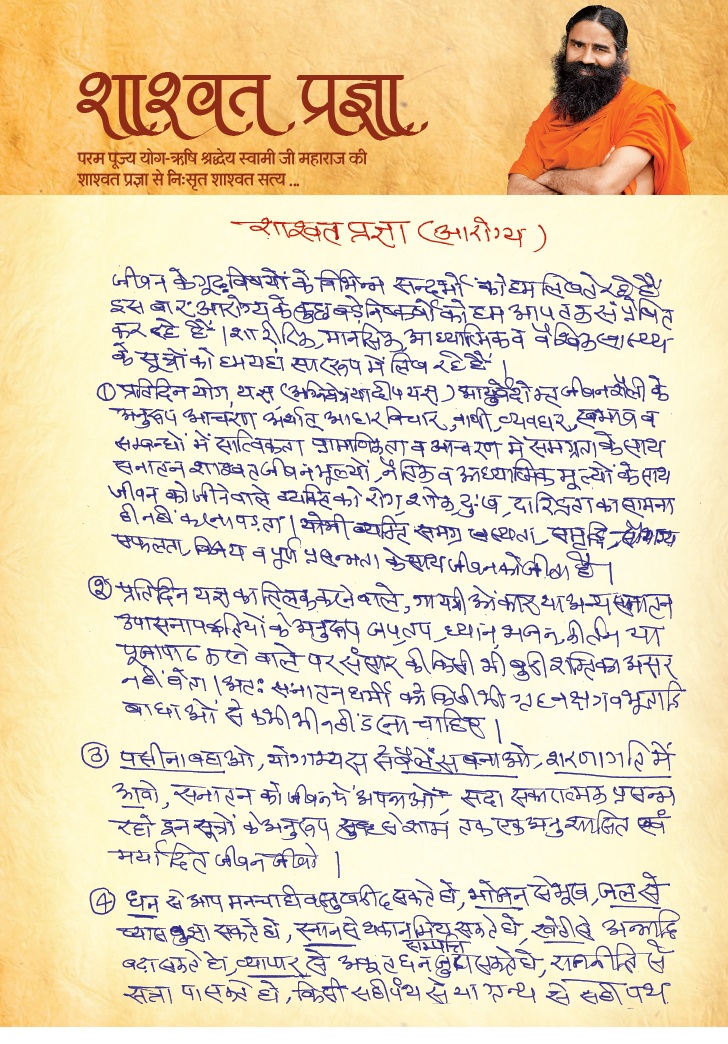 शाश्वत प्रज्ञा
परम पूज्य योग-ऋषि श्रद्धेय स्वामी जी महाराज की
शाश्वत प्रज्ञा से नि:सृत शाश्वत सत्य ...
शाश्वत प्रज्ञा (आरोग्य)
जीवन के गूढ़ विषयों के विभिन्न सन्दर्भों को हम लिखते रहे हैं
इस बार आरोग्य के कुछ बड़े निष्कर्षों को हम आप तक संप्रेषित
कर रहे हैं । शारीरिक, मानसिक, आध्यात्मिक व वैश्विक स्वास्थ्य
के सूत्रों को हम यहां साररूप में लिख रहे हैं ।
① प्रतिदिन योग, यज्ञ आयुर्वेदोक्त जीवन शैली के
अनुरूप आचरण अर्थात् आहार विचार, वाणी, व्यवहार, स्वभाव व
सम्बन्धों में सात्विकता प्रामाणिकता व आचरण में समग्रता के साथ
सनातन शाश्वत जीवन मूल्यों, नैतिक व आध्यात्मिक मूल्यों के साथ
जीवन को जीने वाले व्यक्ति को रोग, शोक, दुःख, दारिद्रता का सामना
ही नहीं करना पड़ता । योगी व्यक्ति समग्र स्वस्थता, समृद्धि, सौभाग्य
सफलता, विजय व पूर्ण प्रसन्नता के साथ जीवन को जीता है ।
② प्रतिदिन यज्ञ का तिलक करने वाले, गायत्री ओंकार या अन्य सनातन
उपासना पद्धतियों के अनुरूप जप, तप, ध्यान, भजन, कीर्तन या
पूजापाठ करने वाले पर संसार की किसी भी बुरी शक्ति का असर
नहीं होता । अतः सनातन धर्मी को किसी भी ग्रह नक्षत्र व भूतादि
बाधाओं से कभी भी नहीं डरना चाहिए ।
③ पसीना बहाओ, योगाभ्यास से बैलेंस बनाओ, शरणागति में
आवो, सनातन को जीवन में अपनाओ, सदा सकारात्मक प्रसन्न
रहो इन सूत्रों के अनुरूप सुबह से शाम तक एक अनुशासित एवं
मर्यादित जीवन जीवो ।
④ धन से आप मनचाही वस्तु खरीद सकते हो, भोजन से भूख, जल से
प्यास बुझा सकते हो, स्नान से थकान मिटा सकते हो, खेती से अन्नादि
बढ़ा सकते हो, व्यापार से अकूत धन सम्पत्ति जुटा सकते हो, राजनीति से
सत्ता पा सकते हो, किसी सही पंथ से या ग्रन्थ से सही पथ